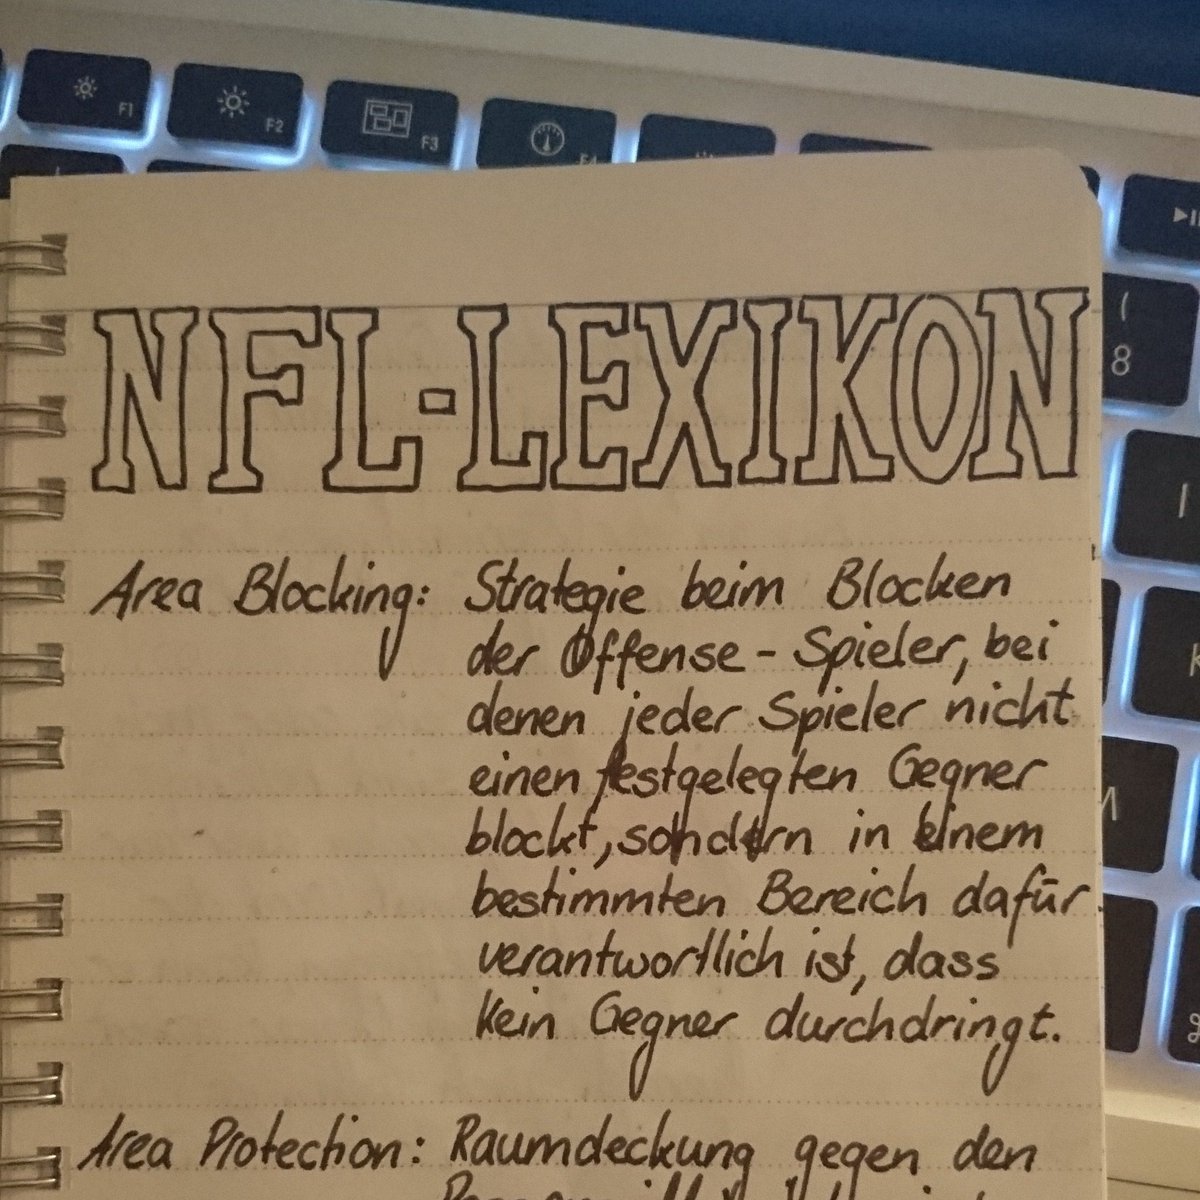 F1
F2
F3
F4
(
8
NFL-LEXIKON
Area Blocking: Strategie beim Blocken
der Offense-Spieler, bei
denen jeder Spieler nicht
einen festgelegten Gegner
blockt, sondern in einem
bestimmten Bereich dafür
verantwortlich ist, dass
kein Gegner durchdringt.
Area Protection: Raumdeckung gegen den